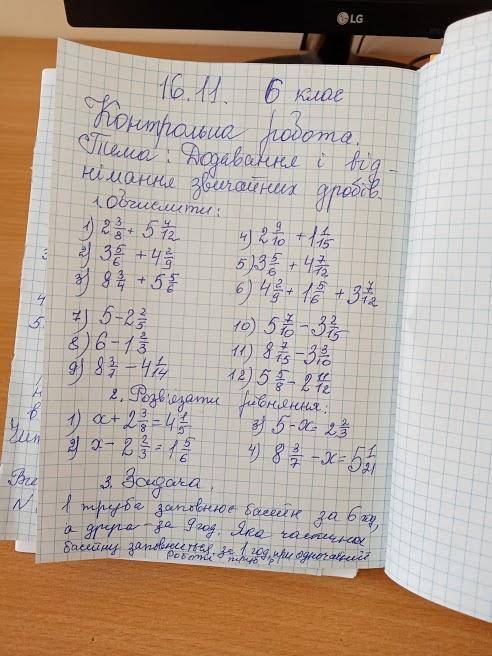 LG
16.11. 6 клас
Контрольна робота.
Тема: Додавання і від-
німання звичайних дробів.
1. Обчислити:
1) 2 3/8 + 5 7/12 4) 2 9/10 + 1 1/15
2) 3 5/6 + 4 2/9 5) 3 5/6 + 4 7/12
3) 8 3/4 + 5 5/6 6) 4 2/9 + 1 5/6 + 3 7/12
7) 5 - 2 2/5 10) 5 7/10 - 3 2/15
8) 6 - 1 2/3 11) 8 7/15 - 3 3/10
9) 8 3/7 - 4 1/14 12) 5 5/8 - 2 11/12
2. Розв'язати рівняння:
1) x + 2 3/8 = 4 1/5 3) 5 - x = 2 2/3
2) x - 2 2/3 = 1 5/6 4) 8 3/7 - x = 5 1/21
3. Задача.
1 труба заповнює басейн за 6 год,
а друга - за 9 год. Яка частина
басейну заповниться за 1 год, при одночасній
роботі труб